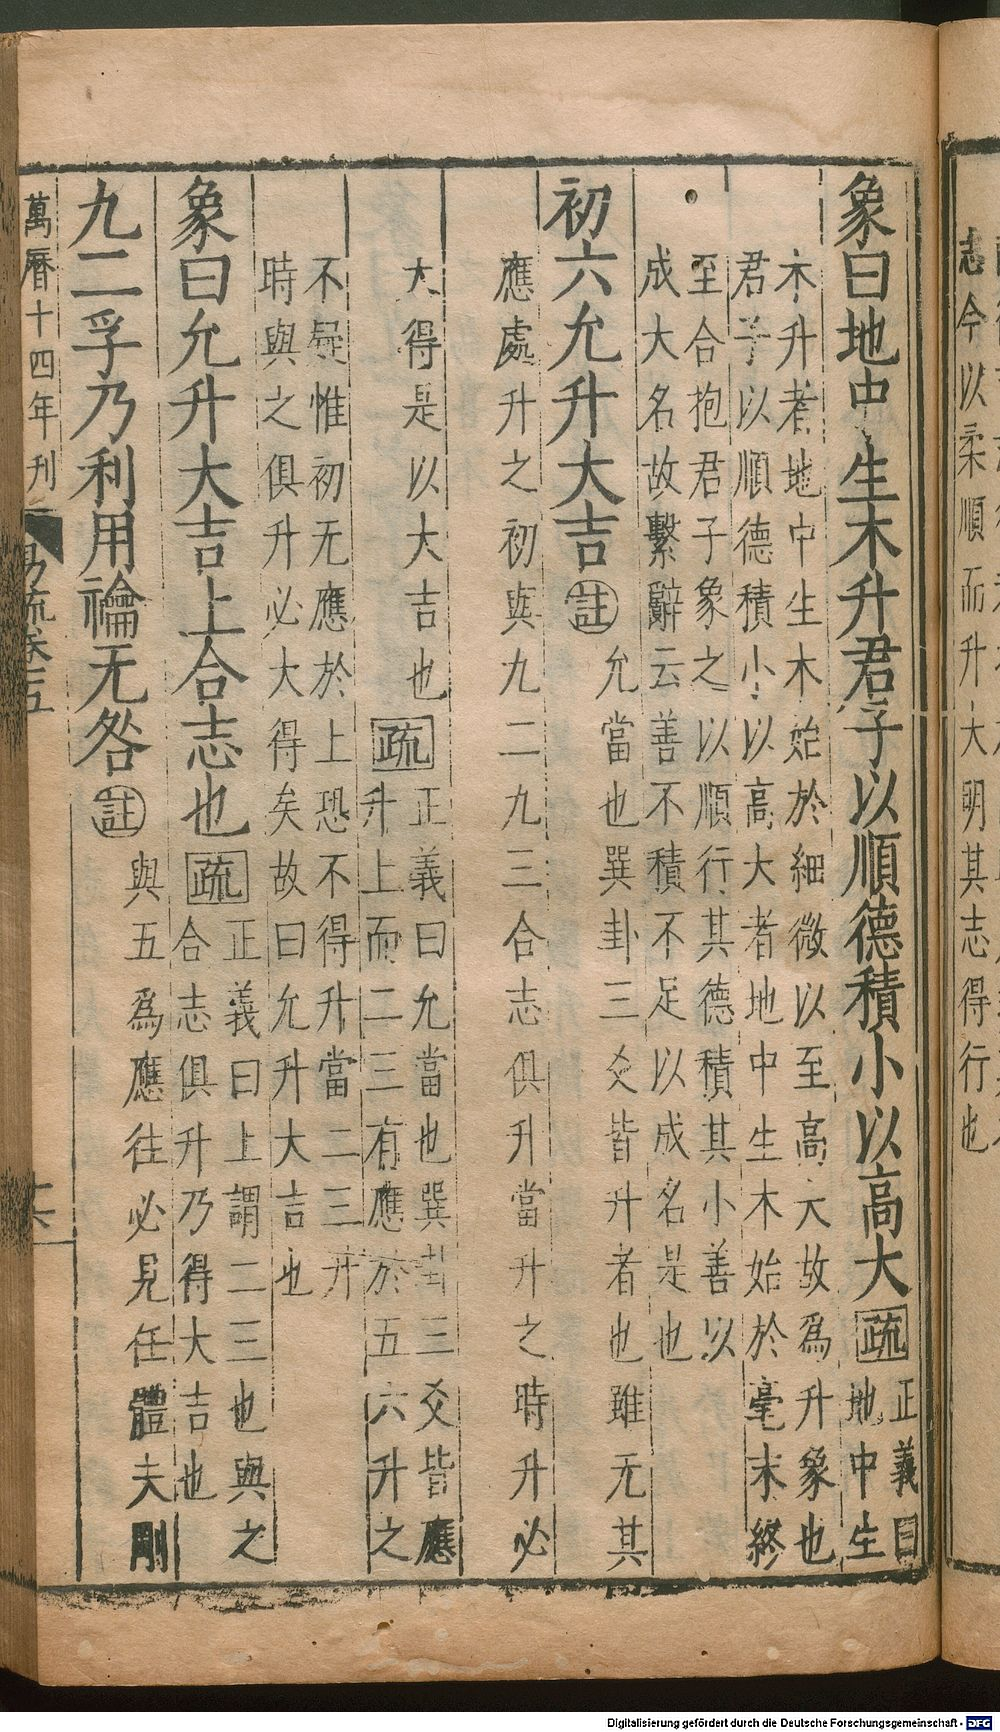 志今以柔順而升大明其志得行也
象曰地中生木升君子以順德積小以高大疏正義曰
地中生
木升者地中生木始於細微以至高大故為升象也
君子以順德積小以高大者地中生木始於毫末終
至合抱君子象之以順行其德積其小善以
成大名故繫辭云善不積不足以成名是也
初六允升大吉註允當也巽卦三爻皆升者也雖无其
應處升之初與九二九三合志俱升當升之時升必
大得是以大吉也疏正義曰允當也巽卦三爻皆應
升上而二三有應於五六升之
不疑惟初无應於上恐不得升當二三升
時與之俱升必大得矣故曰允升大吉也
象曰允升大吉上合志也疏正義曰上謂二三也與之
合志俱升乃得大吉也
九二孚乃利用禴无咎註與五為應往必見任體夫剛
萬曆十四年刊
易疏卷五
Digitalisierung gefördert durch die Deutsche Forschungsgemeinschaft - DFG